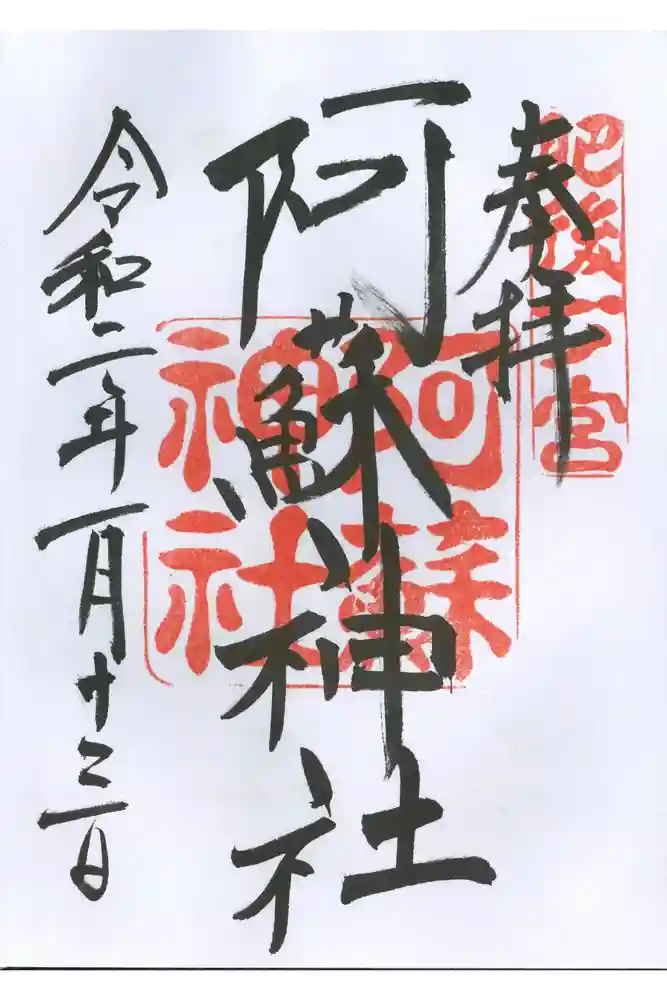 奉拝
肥後一宮
阿蘇神社
阿蘇
神社
令和二年一月十三日